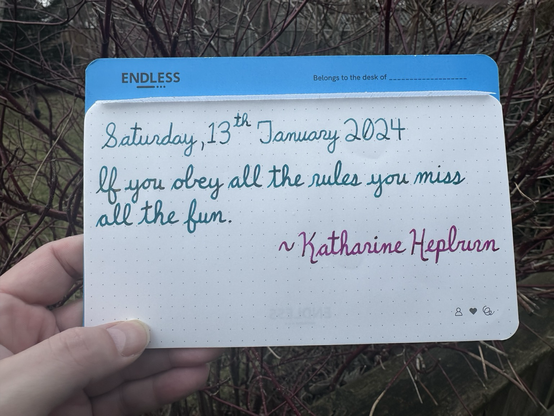 ENDLESS
Belongs to the desk of
Saturday, 13th January 2024
If you obey all the rules you miss
all the fun.
~ Katharine Hepburn